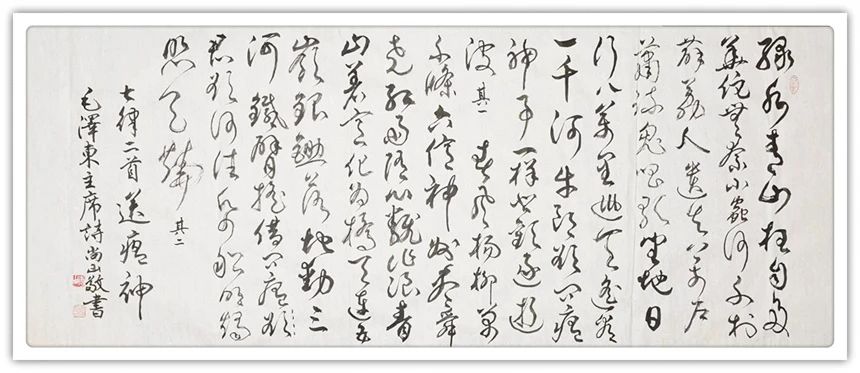 綠水青山枉自多
華佗無奈小蟲何千村
薜荔人遺矢萬戶
蕭疏鬼唱歌坐地日
行八萬里巡天遙看
一千河牛郎欲问瘟
神事一樣悲歡逐逝
波 其一 春風楊柳萬
千條六億神州盡舜
堯紅雨隨心翻作浪青
山着意化為橋天連五
嶺銀鋤落地動三
河鐵臂搖借问瘟欲
君欲何往紙船明燭
照天燒 其二
七律二首 送瘟神
毛澤東主席詩 敬書